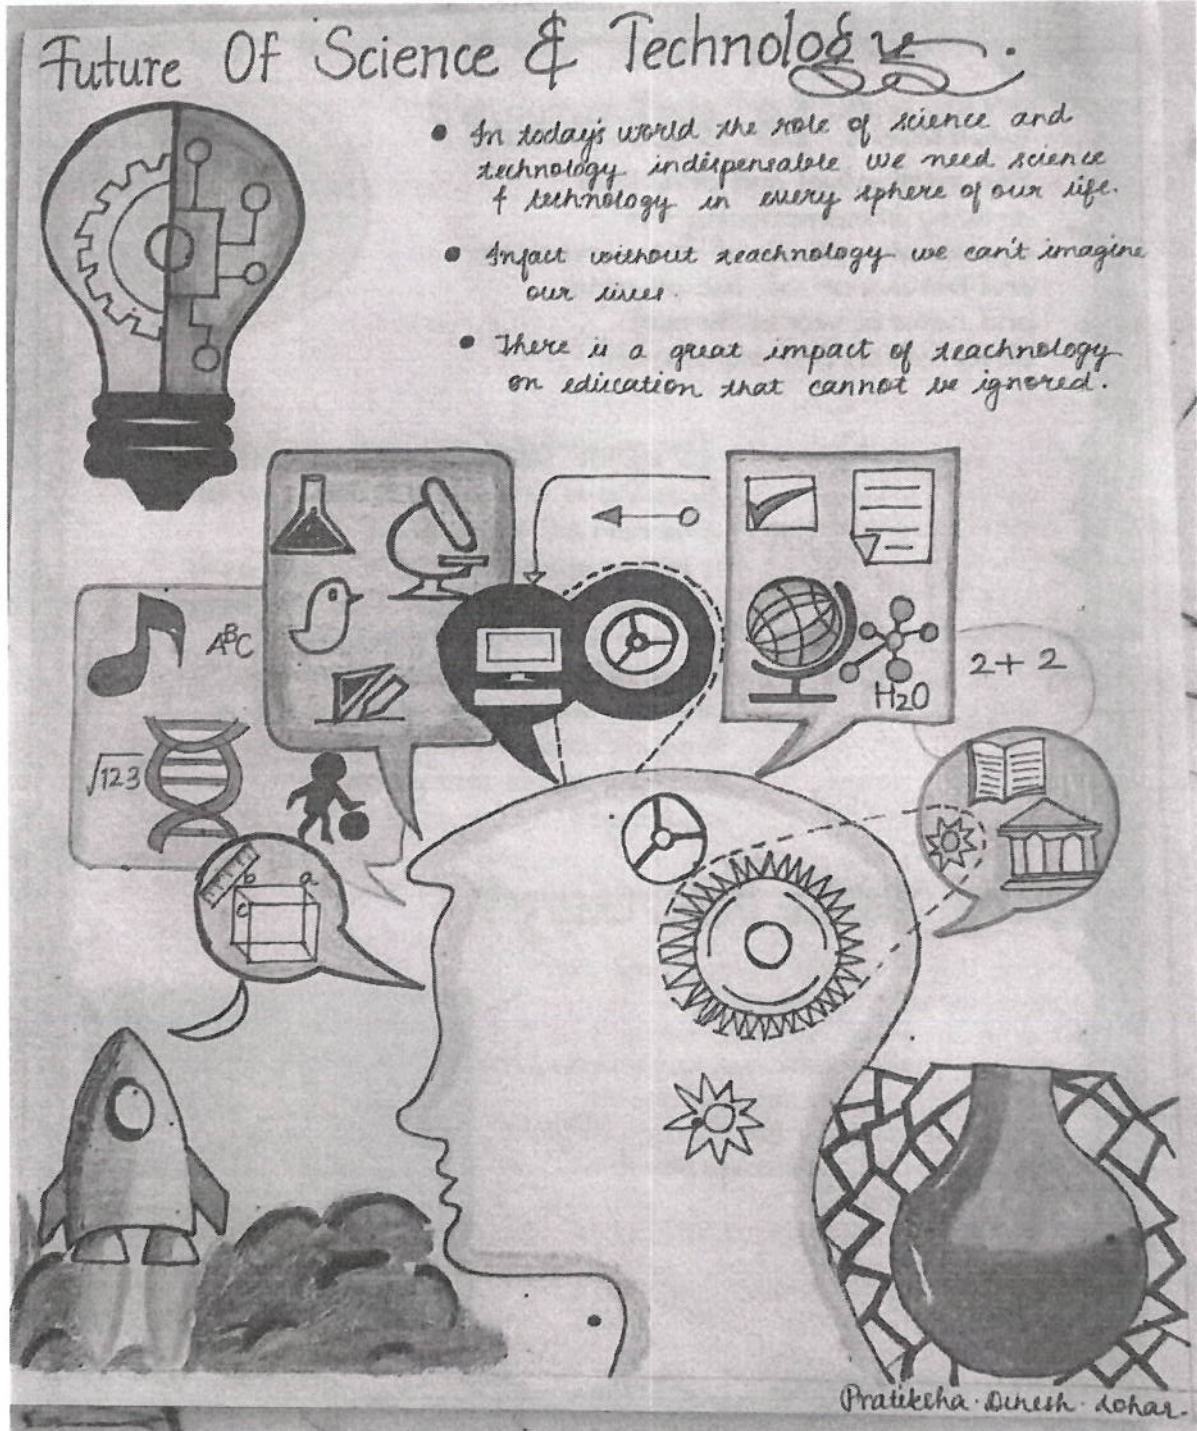 Future Of Science & Technology.
• In today's world the role of science and
technology indispensable we need science
& technology in every sphere of our life.
• Infact without teachnology we can't imagine
our lives.
• There is a great impact of teachnology
on education that cannot be ignored.
ABC
√123
H2O
2+2
b a
c
Pratiksha. Dinesh. Lohar.